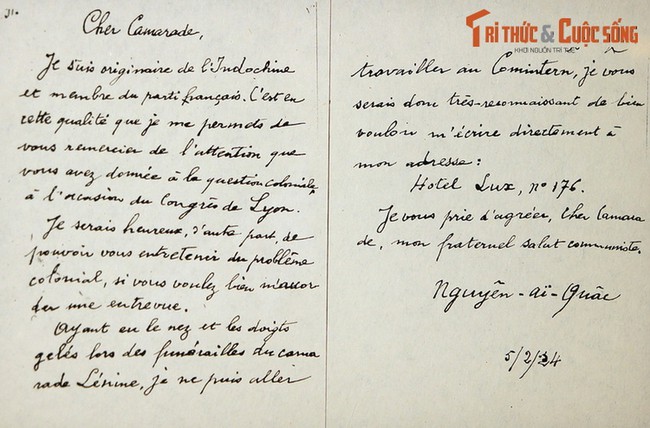 31.
Cher Camarade,
Je suis originaire de l'Indochine
et membre du parti français. C'est en
cette qualité que je me permets de
vous remercier de l'attention que
vous avez donnée à la question coloniale,
à l'occasion du Congrès de Lyon.
Je serais heureux, d'autre part, de
pouvoir vous entretenir du problème
colonial, si vous voulez bien m'accor
der une entrevue.
Ayant eu le nez et les doigts
gelés lors des funérailles du cama
rade Lénine, je ne puis aller
TRI THỨC & CUỘC SỐNG
KHƠI NGUỒN TRI THỨC
travailler au Comintern, je vous
serais donc très-reconnaissant de bien
vouloir m'écrire directement à
mon adresse :
Hotel Lux, n° 176.
Je vous prie d'agréer, Cher Camara
de, mon fraternel salut communiste.
Nguyễn-aï-Quâc
5/2/24